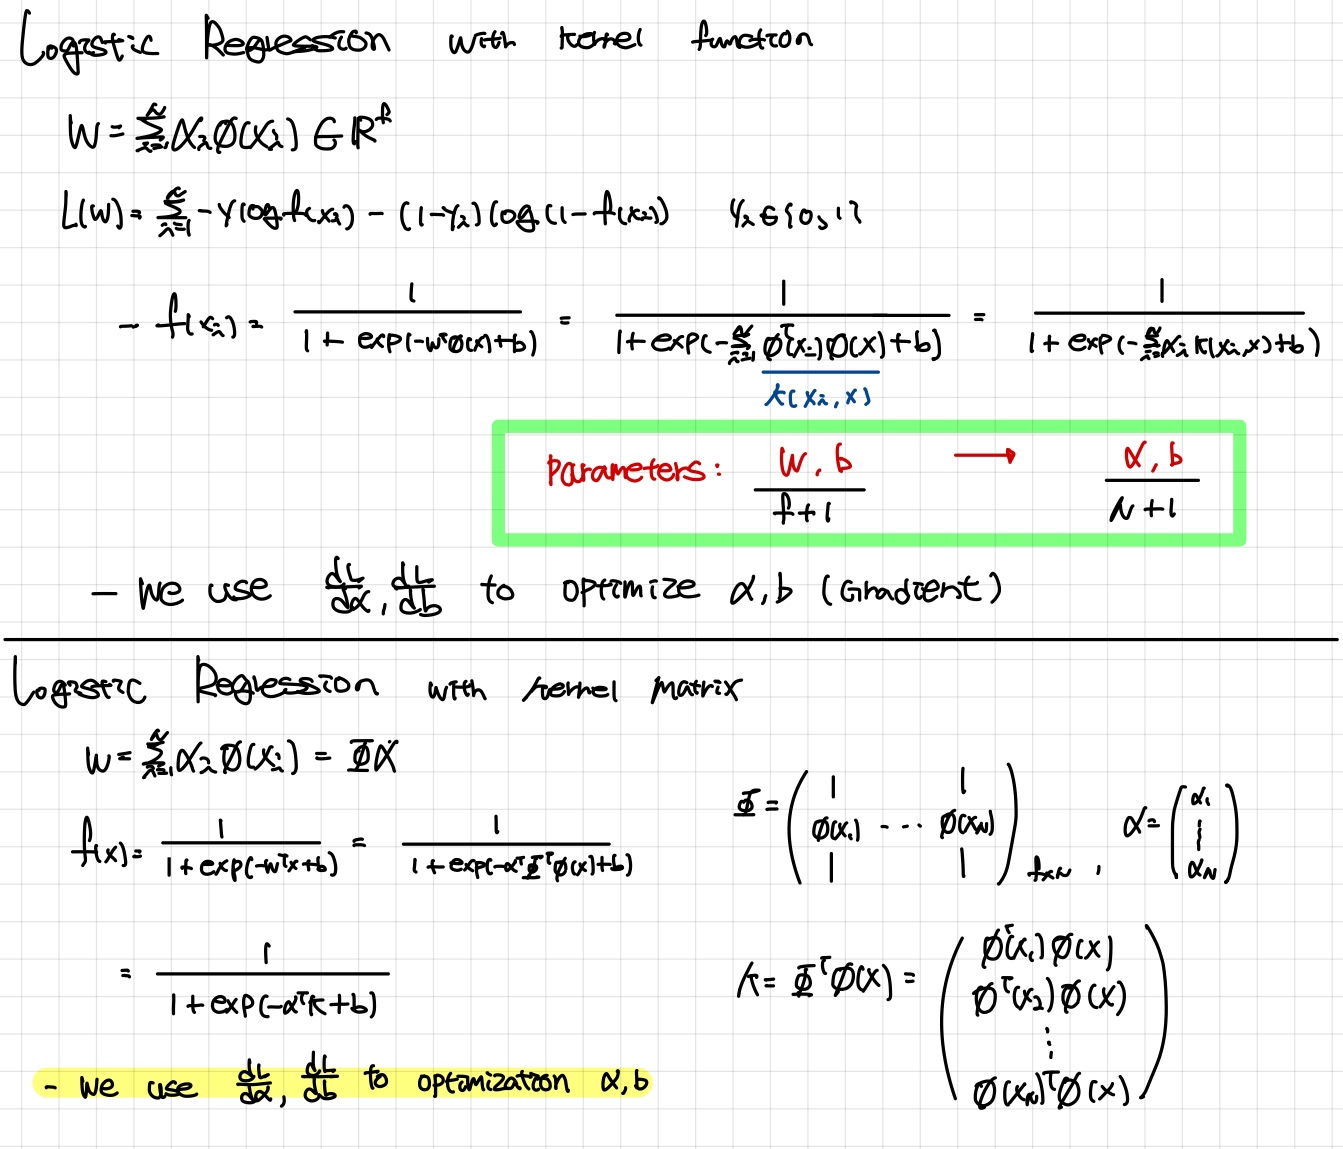 Logistic Regression with kernel function
W = Σ_{i=1}^{N} α_i Ø(x_i) ∈ R^f
L(W) = Σ_{i=1}^{N} -Y log f(x_i) - (1-Y_i) log (1-f(x_i)) Y_i ∈ {0, 1}
- f(x_i) = 1 / (1 + exp(-w^T Ø(x)+b)) = 1 / (1 + exp(-Σ_{i=1}^{N} Ø^T(x_i) Ø(x)+b)) = 1 / (1 + exp(-Σ_{i=1}^{N} α_i k(x_i,x)+b))
k(x_i, x)
Parameters: W, b / f+1 → α, b / N+1
- We use dL/dα, dL/db to optimize α, b (Gradient)
Logistic Regression with kernel matrix
W = Σ_{i=1}^{N} α_i Ø(x_i) = Φα
Φ = ( | Ø(x_1) | ... | Ø(x_N) | )_{f×N} , α = (α_1 ⋮ α_N)
f(x) = 1 / (1 + exp(-w^T x+b)) = 1 / (1 + exp(-α^T Φ^T Ø(x)+b))
= 1 / (1 + exp(-α^T K+b))
K = Φ^T Ø(x) = ( Ø^T(x_1) Ø(x)
Ø^T(x_2) Ø(x)
⋮
Ø(x_N)^T Ø(x) )
- We use dL/dα, dL/db to optimization α, b